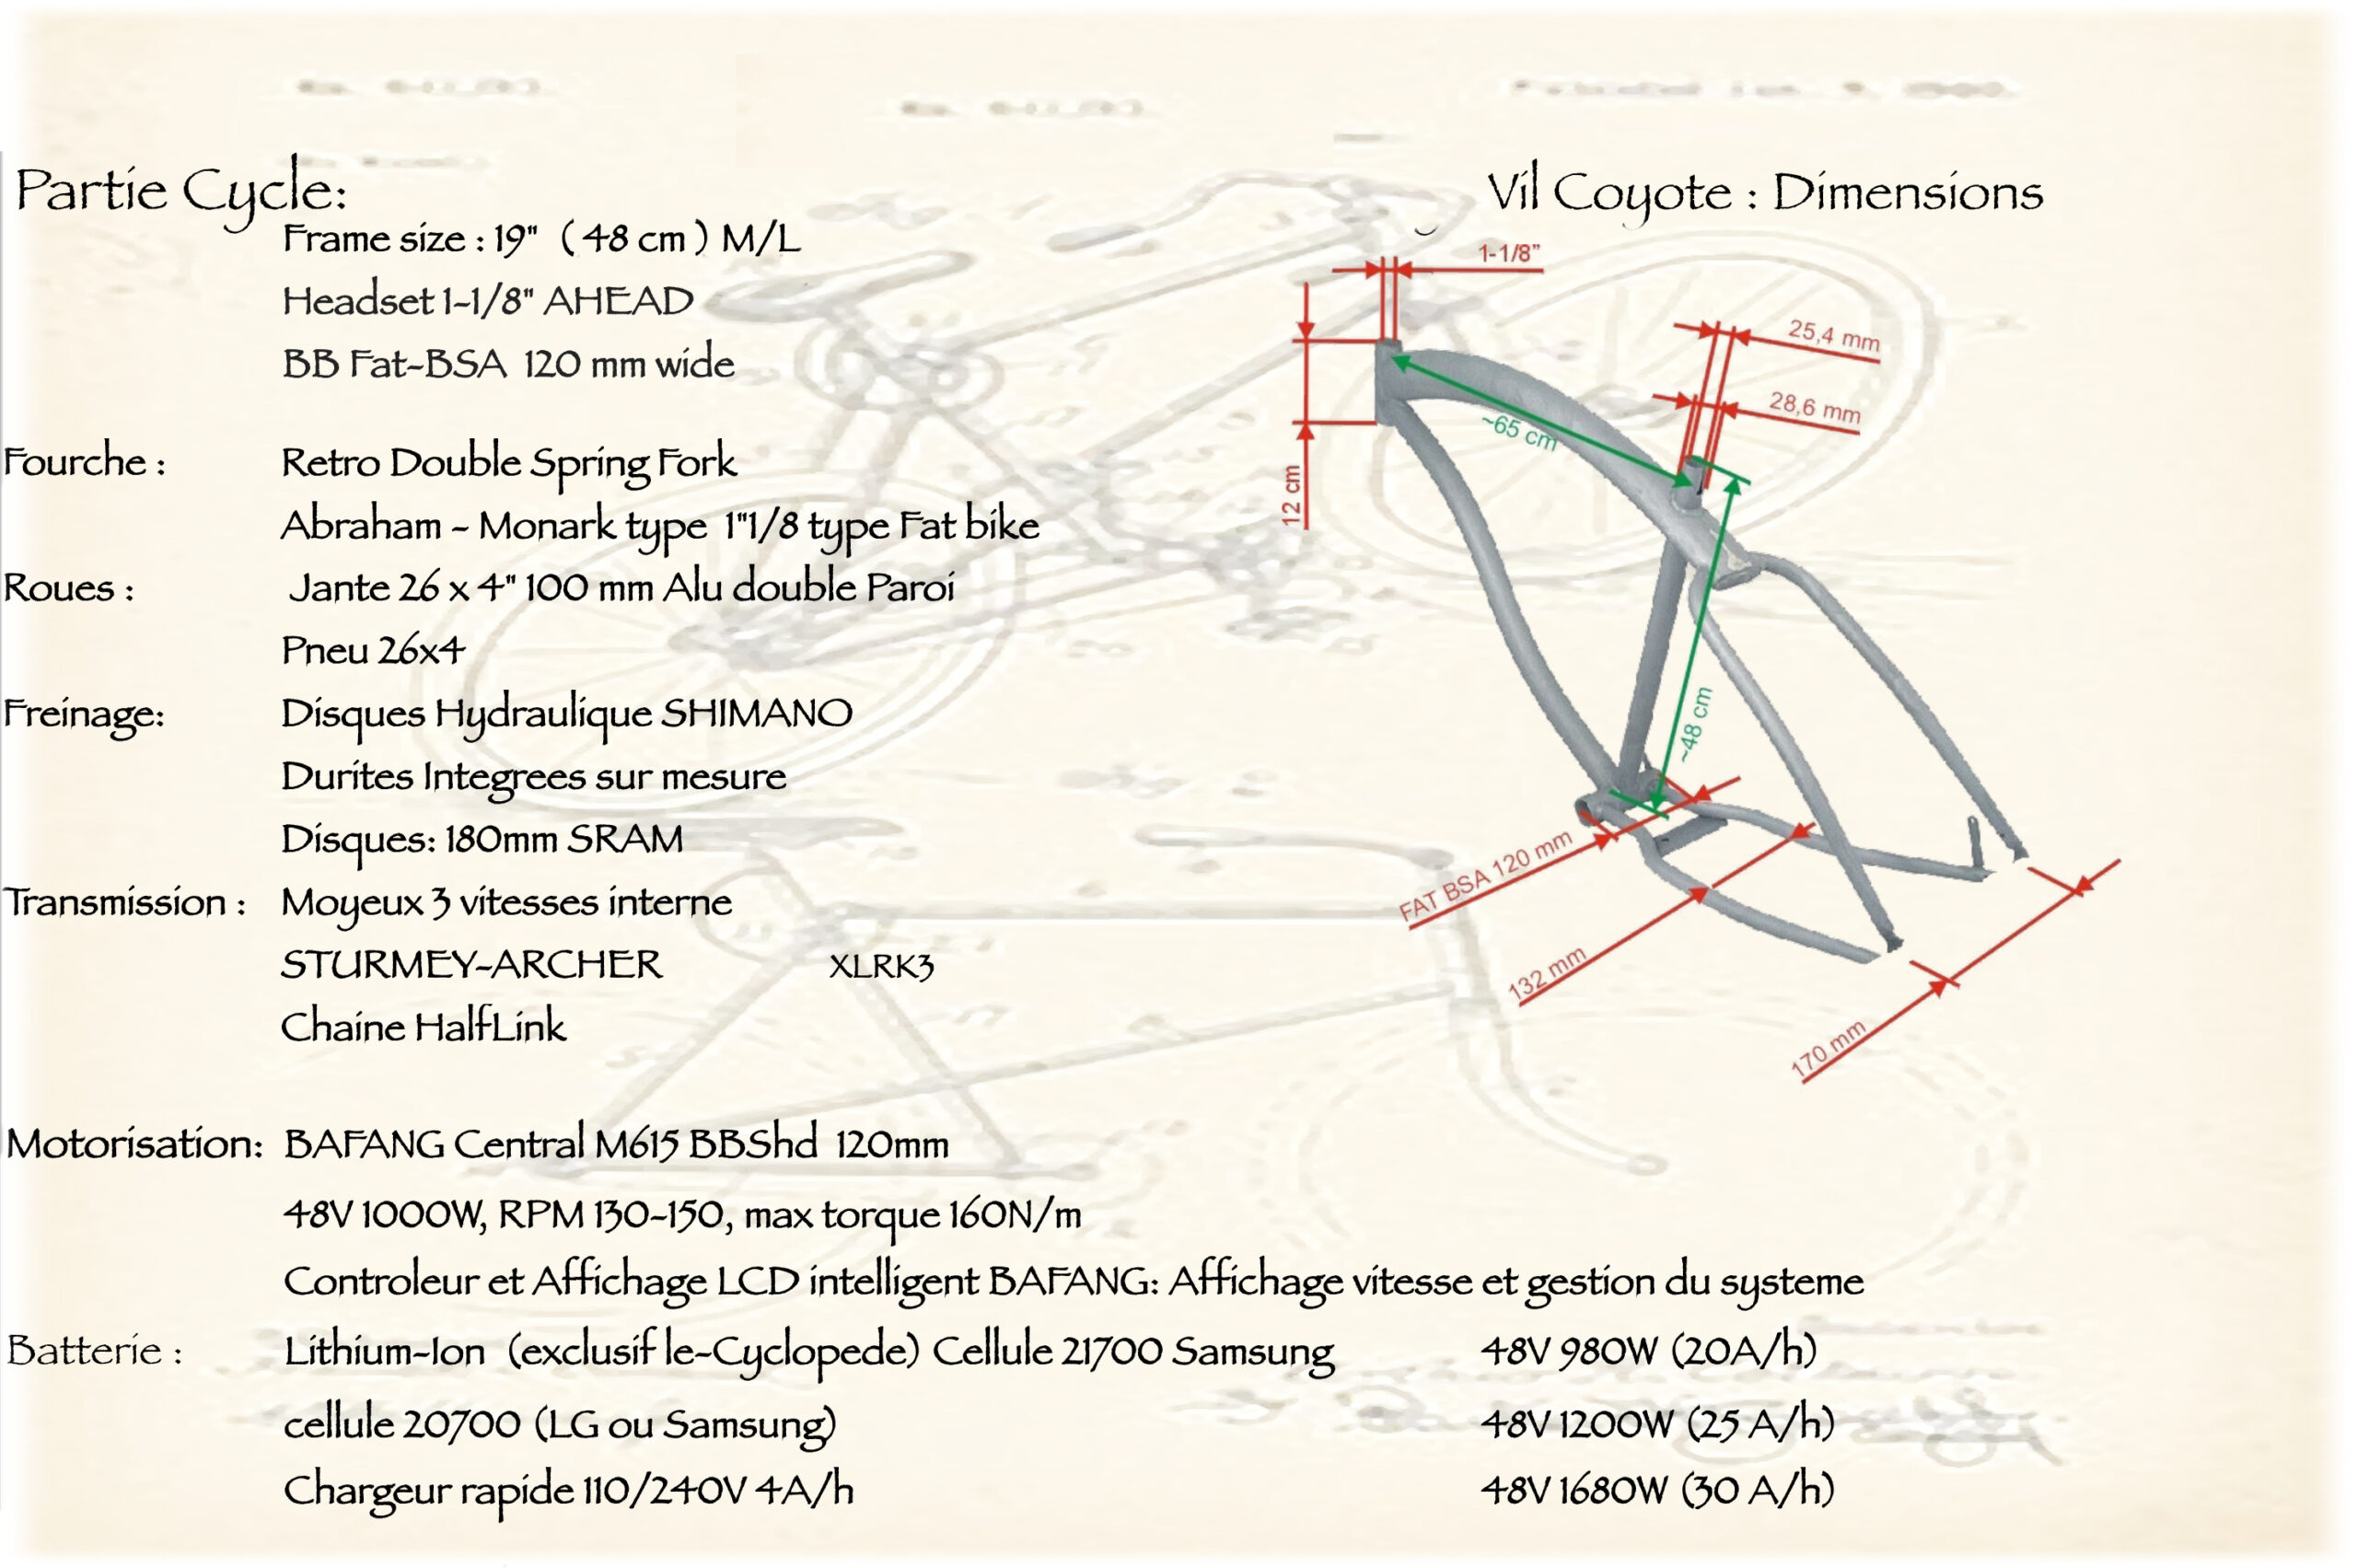 Partie Cycle:
Frame size : 19" ( 48 cm ) M/L
Headset 1-1/8" AHEAD
BB Fat-BSA 120 mm wide
Fourche : Retro Double Spring Fork
Abraham - Monark type 1"1/8 type Fat bike
Roues : Jante 26 x 4" 100 mm Alu double Paroi
Pneu 26x4
Freinage: Disques Hydraulique SHIMANO
Durites Integrees sur mesure
Disques: 180mm SRAM
Transmission : Moyeux 3 vitesses interne
STURMEY-ARCHER XLRK3
Chaine HalfLink
Motorisation: BAFANG Central M615 BBShd 120mm
48V 1000W, RPM 130-150, max torque 160N/m
Controleur et Affichage LCD intelligent BAFANG: Affichage vitesse et gestion du systeme
Batterie : Lithium-Ion (exclusif le-Cyclopede) Cellule 21700 Samsung 48V 980W (20A/h)
cellule 20700 (LG ou Samsung) 48V 1200W (25 A/h)
Chargeur rapide 110/240V 4A/h 48V 1680W (30 A/h)
Vil Coyote : Dimensions
1-1/8"
25,4 mm
28,6 mm
~65 cm
12 cm
~48 cm
FAT BSA 120 mm
132 mm
170 mm